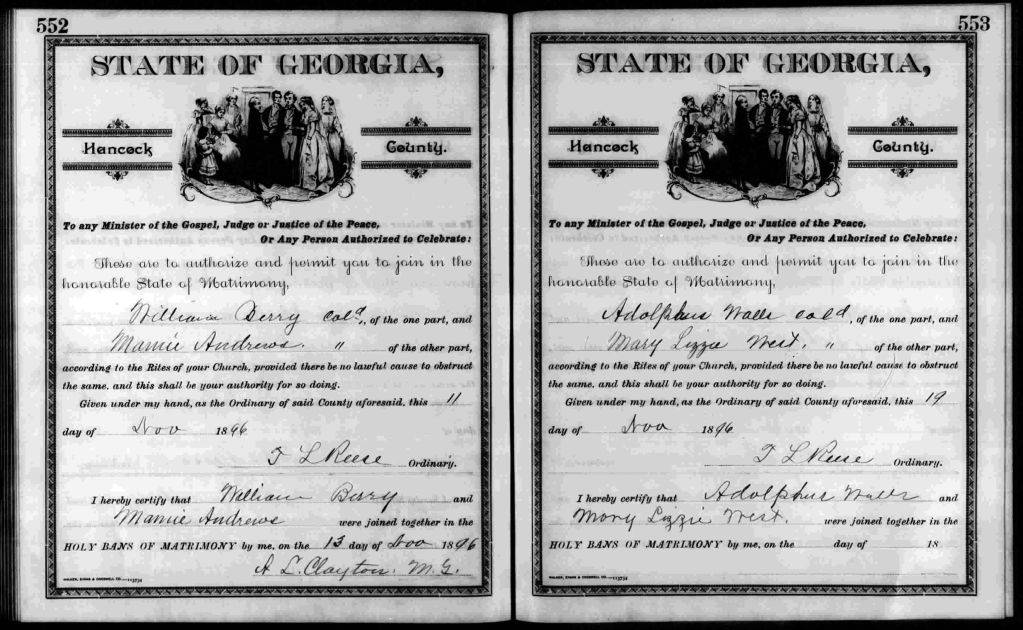 552
STATE OF GEORGIA,
Hancock County.
To any Minister of the Gospel, Judge or Justice of the Peace,
Or Any Person Authorized to Celebrate:
These are to authorize and permit you to join in the
honorable State of Matrimony,
William Berry Cold, of the one part, and
Mamie Andrews " of the other part,
according to the Rites of your Church, provided there be no lawful cause to obstruct
the same, and this shall be your authority for so doing.
Given under my hand, as the Ordinary of said County aforesaid, this 11
day of Nov 1896
T L Reese Ordinary.
I hereby certify that William Berry and
Mamie Andrews were joined together in the
HOLY BANS OF MATRIMONY by me, on the 13 day of Nov 1896
A. L. Clayton. M. G.
WALKER, EVANS & COGSWELL CO.—113734
553
STATE OF GEORGIA,
Hancock County.
To any Minister of the Gospel, Judge or Justice of the Peace,
Or Any Person Authorized to Celebrate:
These are to authorize and permit you to join in the
honorable State of Matrimony,
Adolphus Walls cold, of the one part, and
Mary Lizzie West. " of the other part,
according to the Rites of your Church, provided there be no lawful cause to obstruct
the same, and this shall be your authority for so doing.
Given under my hand, as the Ordinary of said County aforesaid, this 19
day of Nov 1896
T L Reese Ordinary.
I hereby certify that Adolphus Walls and
Mary Lizzie West. were joined together in the
HOLY BANS OF MATRIMONY by me, on the day of 18
WALKER, EVANS & COGSWELL CO.—113734